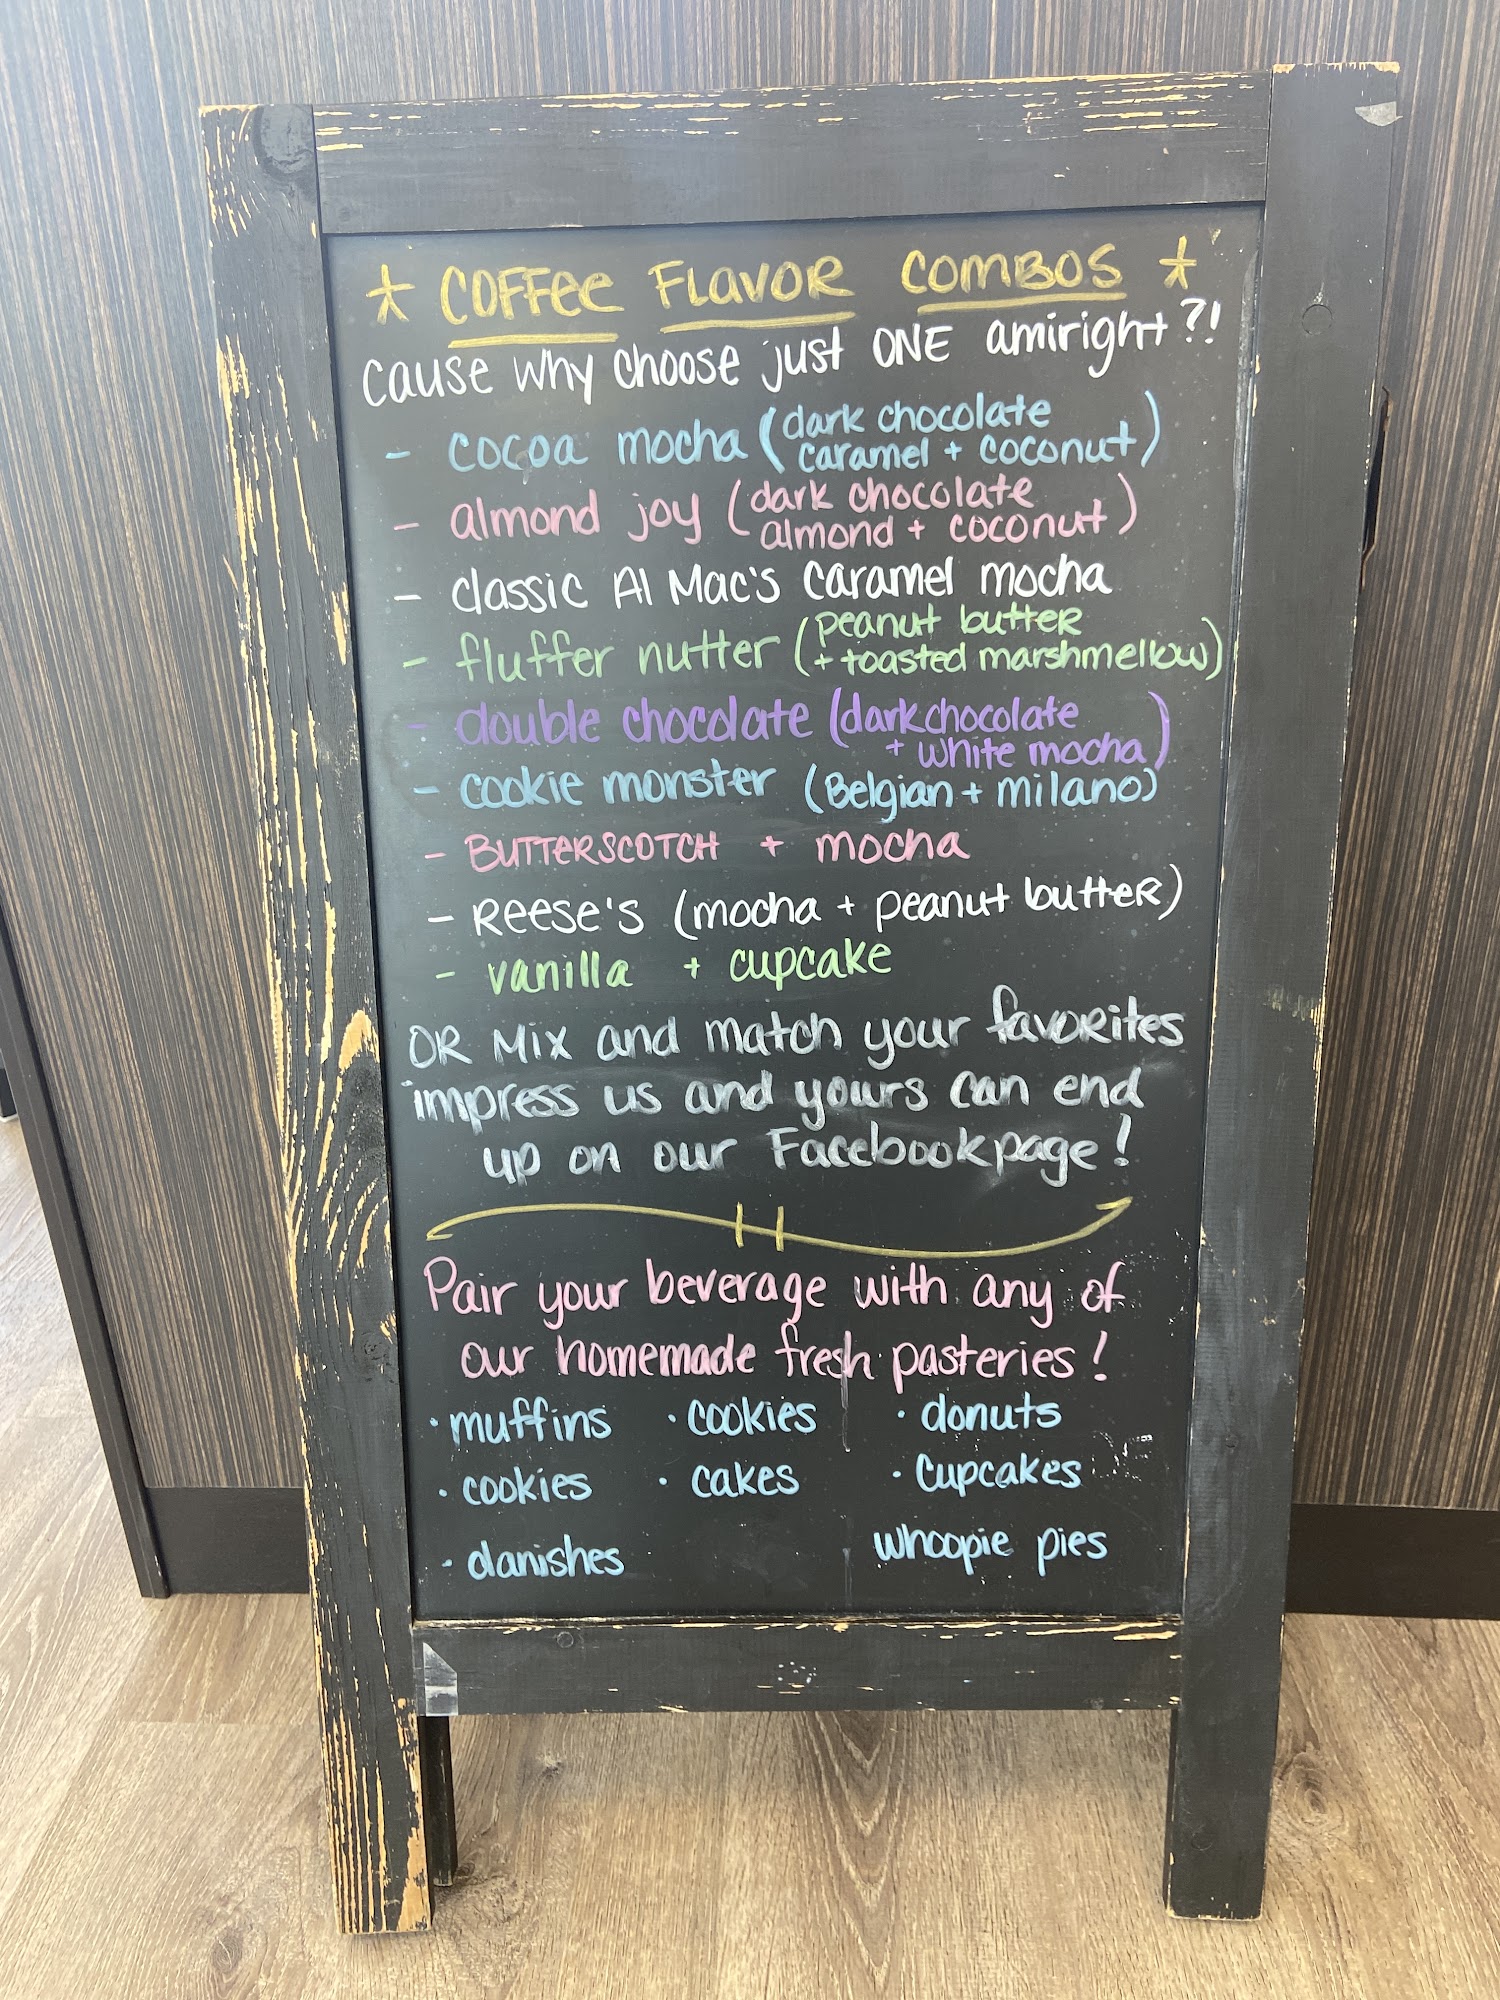 * COFFee FLAVOR COMBOS *
cause why choose just ONE amiright?!
- cocoa mocha (dark chocolate
caramel + coconut)
- almond joy (dark chocolate
almond + coconut)
- classic Al Mac's caramel mocha
- fluffer nutter (peanut butter
+ toasted marshmellow)
- double chocolate (dark chocolate
+ white mocha)
- cookie monster (Belgian + milano)
- BUTTERSCOTCH + mocha
- Reese's (mocha + peanut butter)
- vanilla + cupcake
OR Mix and match your favorites
impress us and yours can end
up on our Facebook page!
Pair your beverage with any of
our homemade fresh pasteries!
· muffins · cookies · donuts
· cookies · cakes · cupcakes
· danishes whoopie pies